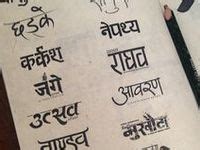 छड़के
नेपथ्य
कर्कश
राघव
जंगे
आवरण
उत्सव
मुखौटा
ताण्डव